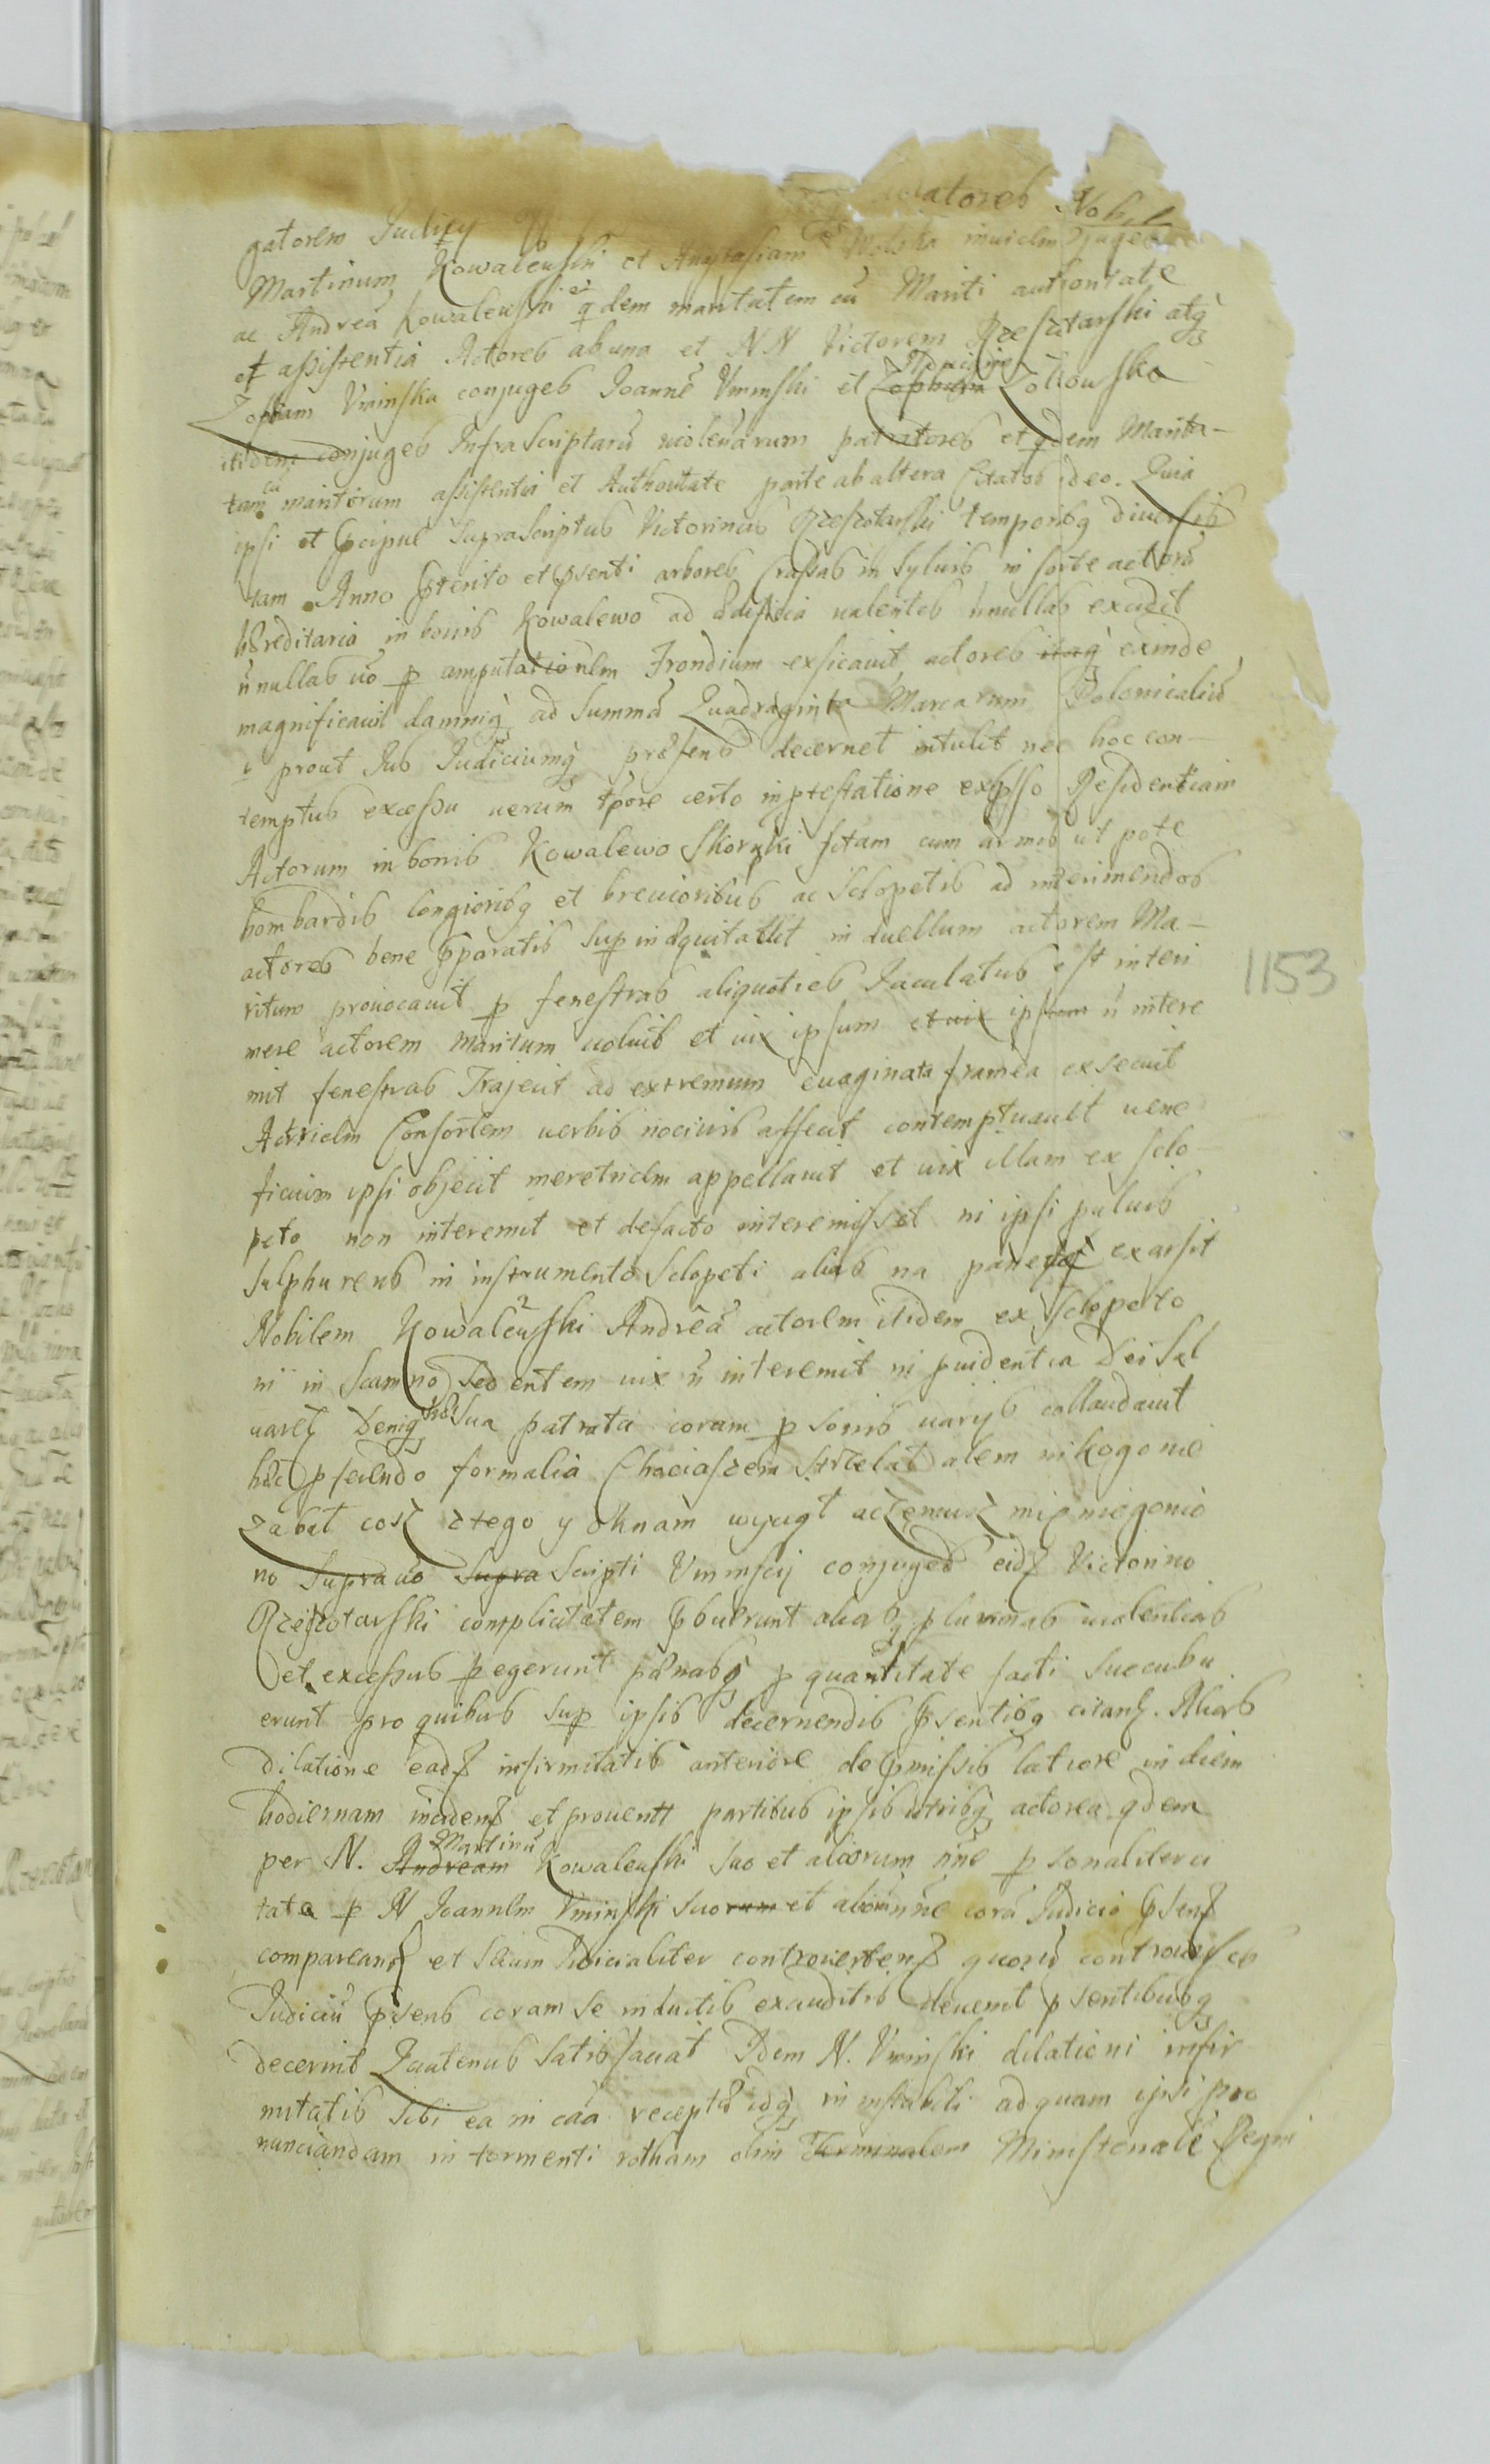 actoreb Nobil
gatorem Judicy
Martinum Kowalewski et Anastasiam Wolska invicem Conjuges
ac Andreā Kowalewski et qdem maritatem cū Mariti authoritate
et assistentia Actoreb ab una et NN Victorem Rzeszotarski atq
Zophiam Uminska conjugeb Joannē Uminski et Zophiam Zółtowska
itidem conjugeb Infrascriptarū violētiarum patratoreb et qdem Marita-
tam cū maritorum assistentia et Authoritate parte ab altera Citatob ideo. Quia
ipsi et pcipue suprascriptub Victorinub Rzeszotarski temporibq diversib
tam Anno pterito et psenti arboreb Crassab in Sylvib in sorte actorū
hæreditaria in bonib Kowalewo ad ædificia valenteb nnullab excidit
nnullab vo p amputationem Frondium exsicavit actoreb itaq exinde
magnificavit damniq ad Summā Quadraginta Marcarum Polonicaliū
v prout Sub Judiciumq præsenb decernet intulit nec hoc con-
temptub excessu verum tpore certo in ptestatione expsso Residentiam
Actorum in bonib Kowalewo Skorupki sitam cum armib ut pote
bombardib longioribq et brevioribub ac Sclopetib ad interimendob
actoreb bene pparatib Sup inæquitavit in duellum actorem Ma-
ritum provocavit p fenestrab aliquotieb Jaculatub est interi
mere actorem Maritum voluit et vix ipsum et vix ipsum n intere
mit fenestrab Trajecit ad extremum evaginata framea exsecuit
Actricem Consortem verbib nocivib affecit contemptuavit vene
ficium ipsi objecit meretricem appellavit et vix illam ex sclo-
peto non interemit et defacto interemisset ni ipsi pulvib
sulphureub in instrumento Sclopeti aliab na panewce exarsit
Nobilem Kowalewski Andreā actorem itidem ex Sclopeto
in Scamno Sedentem vix n interemit ni pvidentia Dei Sal
varet Deniq hæc Sua patrata coram psonib varijb collaudavit
hæc pferendo formalia Chociaszem strzelał alem nikogo nie
zabał cosz ztego y oknam wyciął aczemusz mię niegonio
no Supra vo Supra Scripti Uminscij conjugeb eidz Victorino
Rzeszotarski complicitatem pbuerunt aliabq plurimab violentiab
et excessub pegerunt pœnabq p quantitate facti succubu
erunt pro quibub sup ipsib decernendib psentibq citantz. Aliab
Dilatione eadz infirmitatib anteriore de pmissib latiore in diem
hodiernam incidenz et provenit partibub ipsib utribq actorea qdem
per N. Andream Martinū Kowalewski suo et aliorum nne psonaliter ci
tata p N Joannem Uminski suorum et aliorū nne corā Judicio psenz
comparenz et secum Judicialiter controvertenz quorū controversib
Judiciū psenb coram se inductib exauditib devenit psentibubq
decernit Quatenub Satibfaciat Idem N. Uminski dilationi infir
mitatib sibi ea in caā receptæ idq in instabili ad quam ipsi pro
nunciandam in termenti rotham olim Terminalem Ministeriale Regni
1153